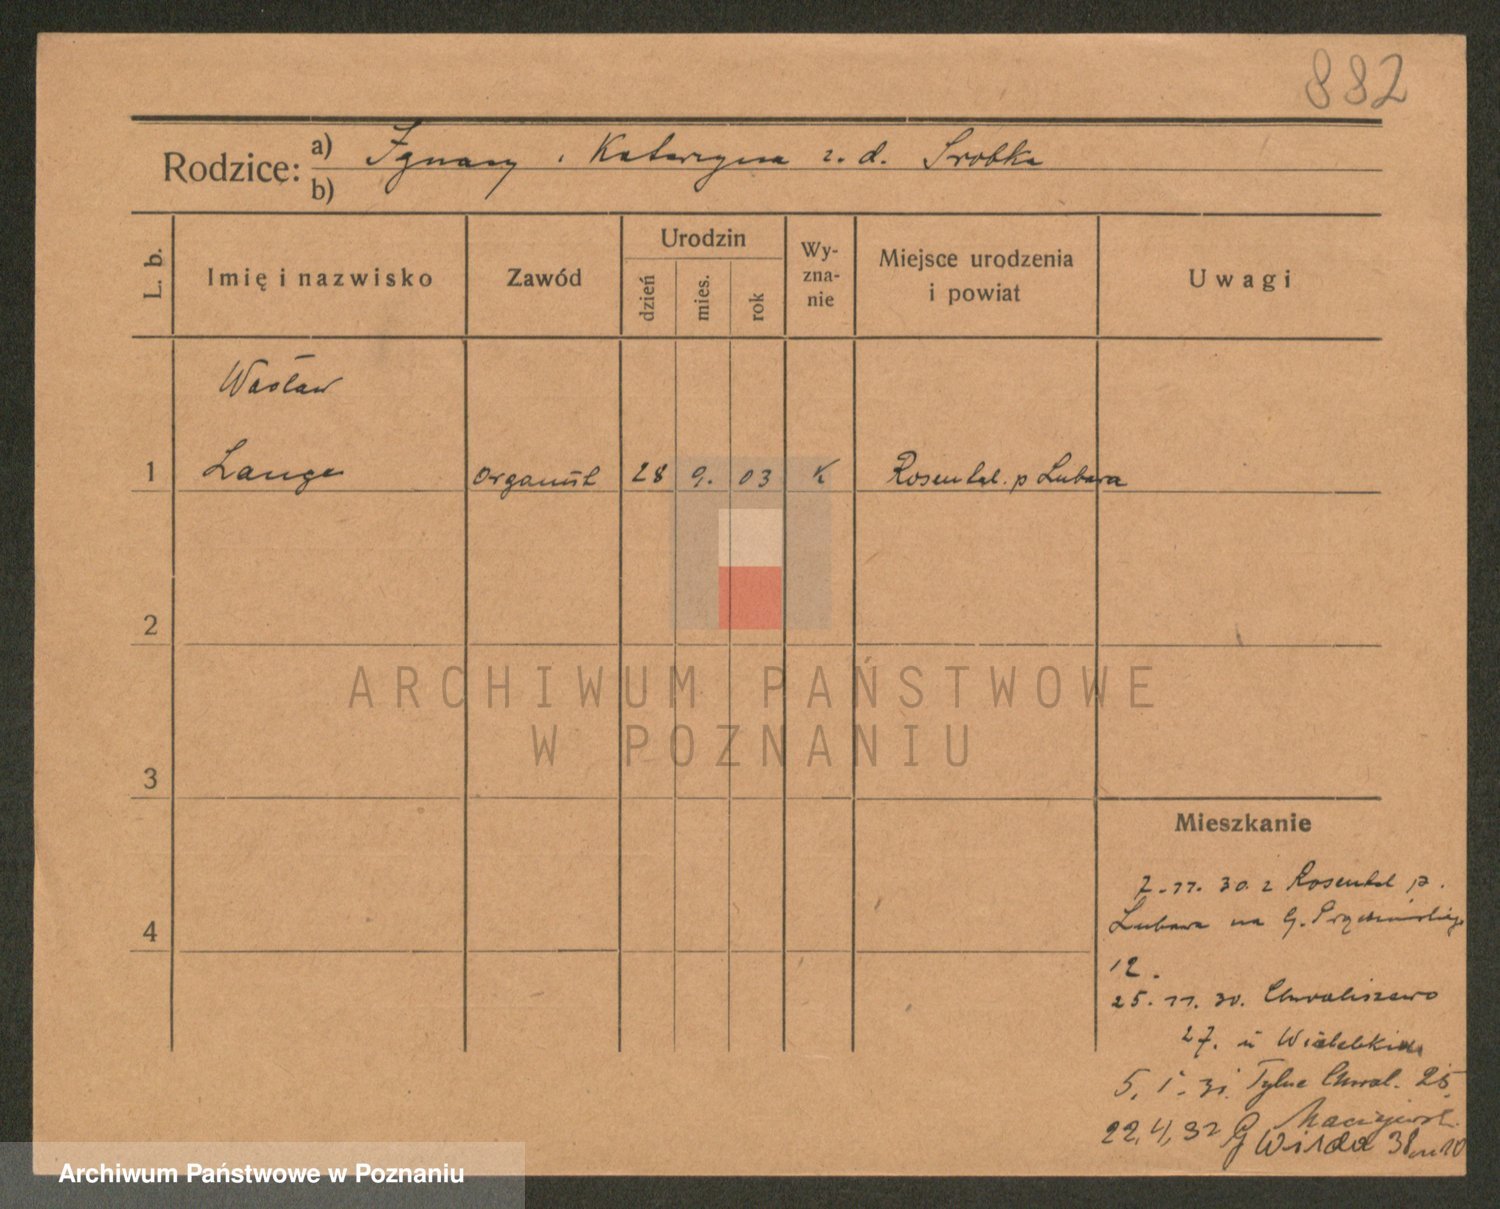 882
Rodzice: a) Ignacy i Katarzyna z. d. Srobka
b)
L. b.
Imię i nazwisko
Zawód
Urodzin
dzień
mies.
rok
Wy-
zna-
nie
Miejsce urodzenia
i powiat
Uwagi
Wacław
1 Lange organist 28 9. 03 K Rosental. p Lubawa
2
3
4
Mieszkanie
7.11.30 z Rosental p.
Lubawa na G.
12.
25.11.30. Chwaliszewo
27. u
5.1.31. Tylne Chwal. 25.
22,4,32 Maciejewsk.
G Wilda 38 m 10
ARCHIWUM PAŃSTWOWE
W POZNANIU
Archiwum Państwowe w Poznaniu